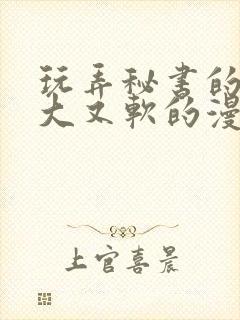 玩弄秘书的
大又软的漫
上官喜晨